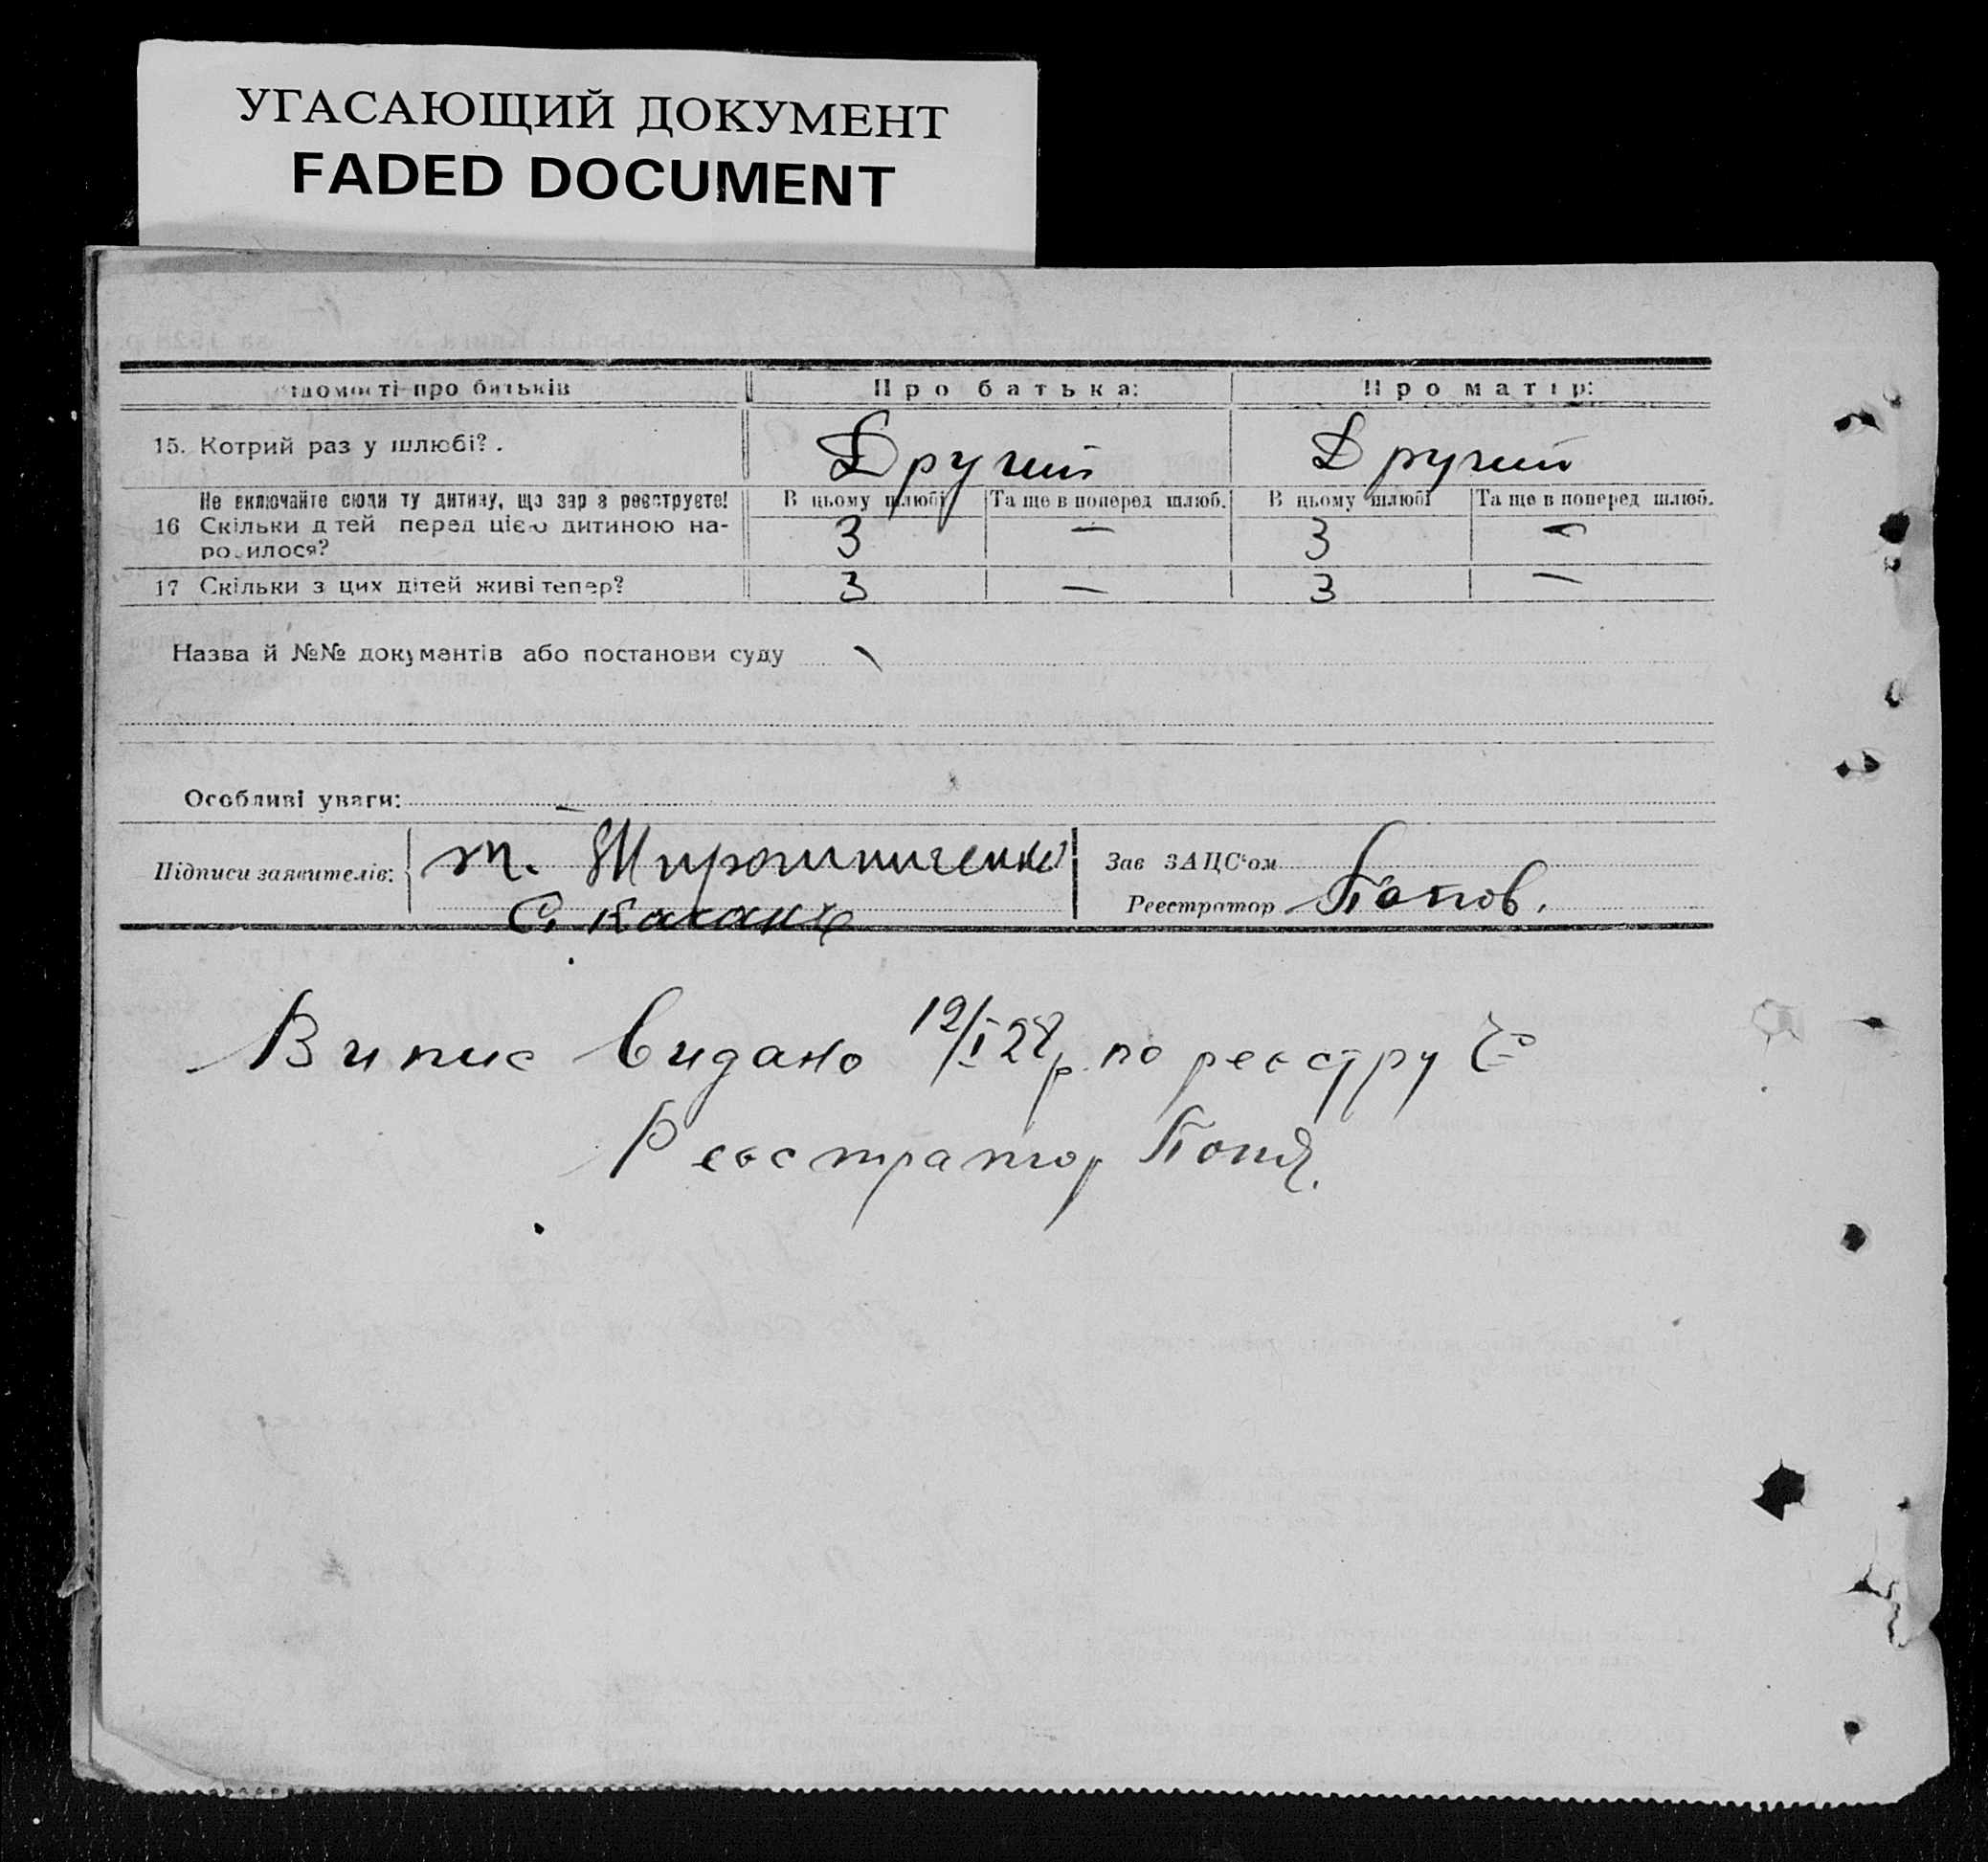 УГАСАЮЩИЙ ДОКУМЕНТ
FADED DOCUMENT
ідомості про батьків Про батька: Про матір:
15. Котрий раз у шлюбі?. Другий Другий
Не включайте сюди ту дитину, що зараз реєструєте! В цьому шлюбі Та ще в поперед шлюб. В цьому шлюбі Та ще в поперед шлюб.
16 Скільки дітей перед цією дитиною на- 3 — 3 —
родилося?
17 Скільки з цих дітей живі тепер? 3 — 3 —
Назва й №№ документів або постанови суду
Особливі уваги: —
Підписи заявителів: т. Мирошниченко Зав ЗАЦС'ом
Реєстратор Попов.
Випис видано 12/I 28 р. по реєстру
Реєстратор Попов.